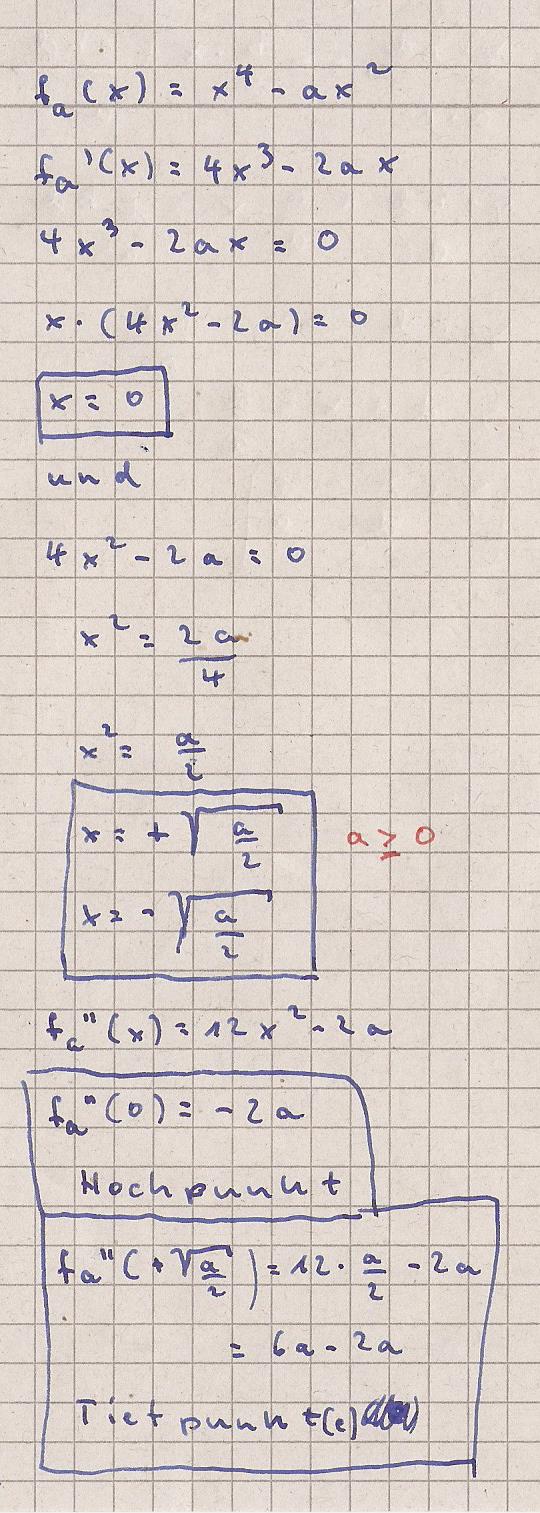 fₐ(x) = x⁴ - ax²
fₐ'(x) = 4x³ - 2ax
4x³ - 2ax = 0
x · (4x² - 2a) = 0
x = 0
und
4x² - 2a = 0
x² = 2a/4
x² = a/2
x = + √(a/2) a ≥ 0
x = - √(a/2)
fₐ''(x) = 12x² - 2a
fₐ''(0) = -2a
Hochpunkt
fₐ''(+√(a/2)) = 12 · a/2 - 2a
= 6a - 2a
Tiefpunkt(e)